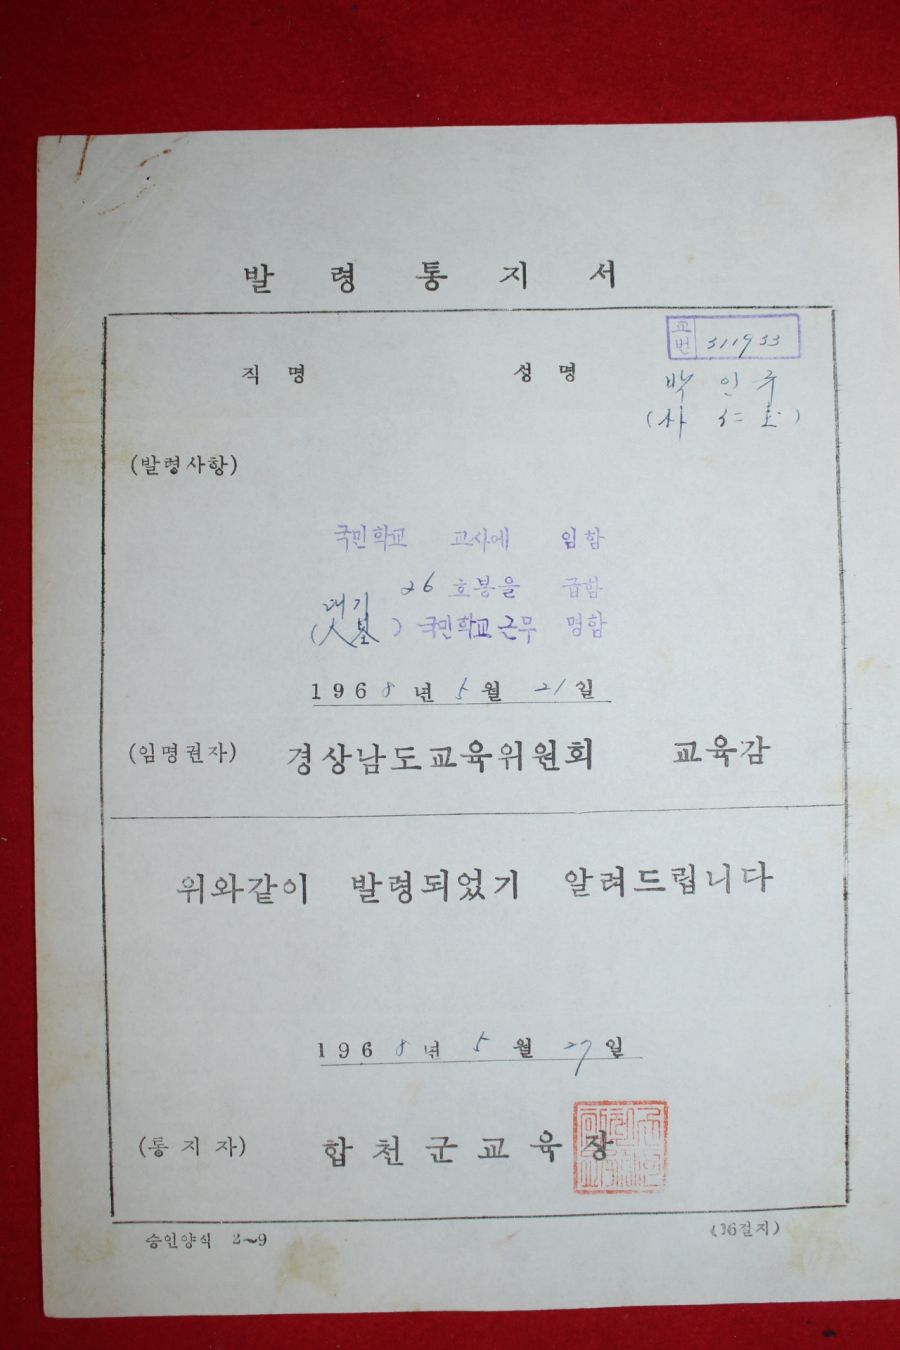 발 령 통 지 서
교번 311933
직 명 성 명 박 인 주
(발령사항)
국민학교 교사에 임함
26 호봉을 급함
대기
( ) 국민학교 근무 명함
1968년 5월 21일
(임명권자) 경상남도교육위원회 교육감
위와같이 발령되었기 알려드립니다
1968년 5월 27일
(통 지 자) 합 천 군 교 육 장
승인양식 2~9 (16절지)